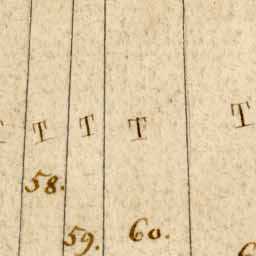 T T T T
58.
59. 60.